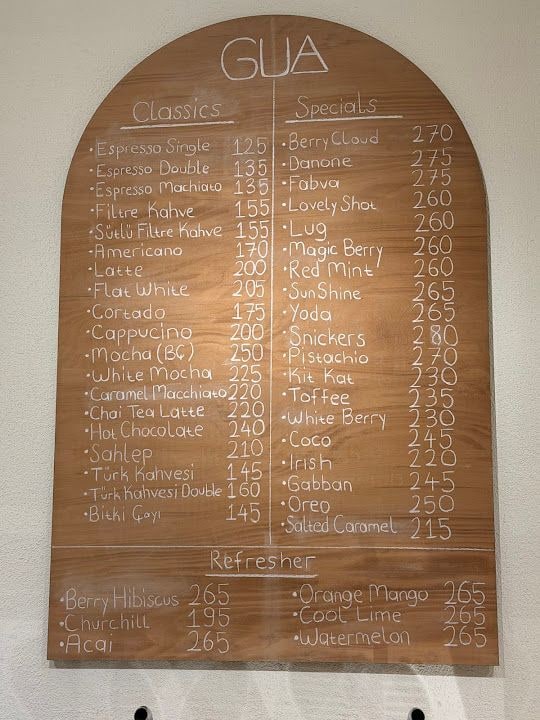 GUA
Classics
• Espresso Single 125
• Espresso Double 135
• Espresso Machiato 135
• Filtre Kahve 155
• Sütlü Filtre Kahve 155
• Americano 170
• Latte 200
• Flat White 205
• Cortado 175
• Cappucino 200
• Mocha (BÇ) 250
• White Mocha 225
• Caramel Macchiato 220
• Chai Tea Latte 220
• Hot Chocolate 240
• Sahlep 210
• Türk Kahvesi 145
• Türk Kahvesi Double 160
• Bitki Çayı 145
Specials
• Berry Cloud 270
• Danone 275
• Fabva 275
• Lovely Shot 260
• Lug 260
• Magic Berry 260
• Red Mint 260
• SunShine 265
• Yoda 265
• Snickers 280
• Pistachio 270
• Kit Kat 230
• Toffee 235
• White Berry 230
• Coco 245
• Irish 220
• Gabban 245
• Oreo 250
• Salted Caramel 215
Refresher
• Berry Hibiscus 265
• Churchill 195
• Acai 265
• Orange Mango 265
• Cool Lime 265
• Watermelon 265